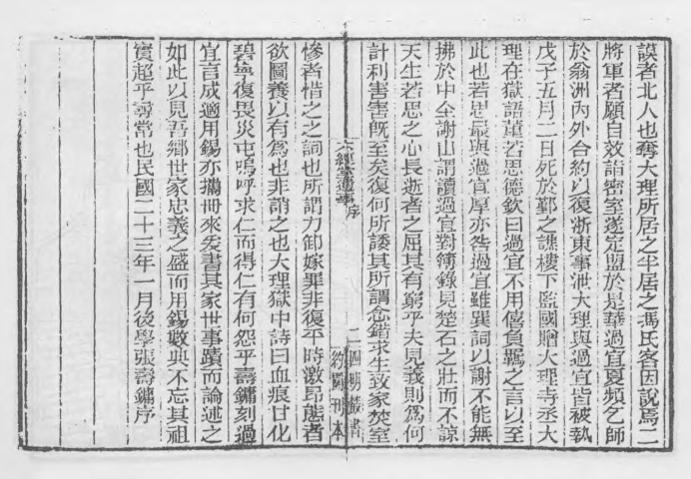 謨者北人也奪大理所居之半居之馮氏客因說焉二
將軍者願自效詣密室遂定盟於是華過宜夏頻乞師
於翁洲內外合約以復浙東事泄大理與過宜皆被執
戊子五月二日死於鄞之譙樓下監國贈大理寺丞大
理在獄語董若思德欽曰過宜不用僖負羈之言以至
此也若思最與過宜厚亦咎過宜雖巽詞以謝不能無
拂於中全謝山謂讀過宜對簿錄見楚石之壯而不諒
天生若思之心長逝者之屈其有窮乎夫見義則為何
計利害害旣至矣復何所諉其所謂忿錯求生致家焚室
六經堂遺事 序
二 四明叢書
約園刊本
慘者惜之之詞也所謂力卸嫁罪非復平時激昂態者
欲圖養以有為也非誚之也大理獄中詩曰血痕甘化
碧寧復畏災屯嗚呼求仁而得仁有何怨乎壽鏞刻過
宜言成適用錫亦攜冊來爰書其家世事蹟而論述之
如此以見吾鄉世家忠義之盛而用錫敭典不忘其祖
實超乎尋常也民國二十三年一月後學張壽鏞序